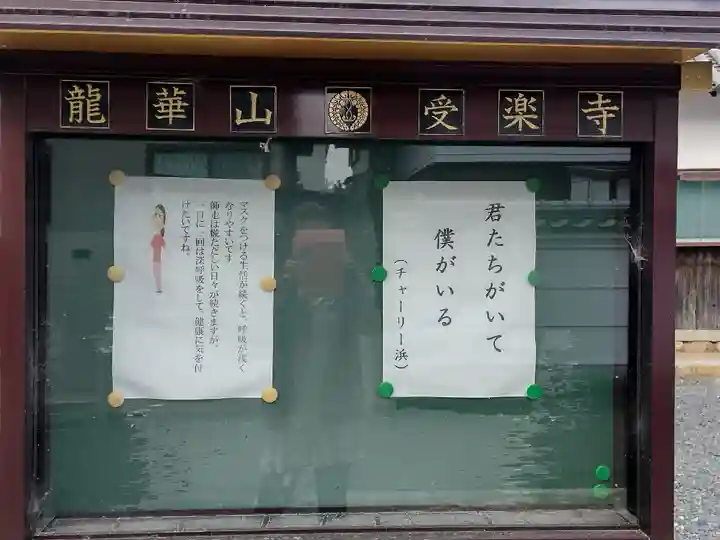 龍華山受楽寺
君たちがいて
僕がいる
(チャーリー浜)
マスクをつける生活が続くと、呼吸が浅く
なりやすいです
師走は慌ただしい日々が続きますが、
一日に一回は深呼吸をして、健康に気を付
けたいですね。